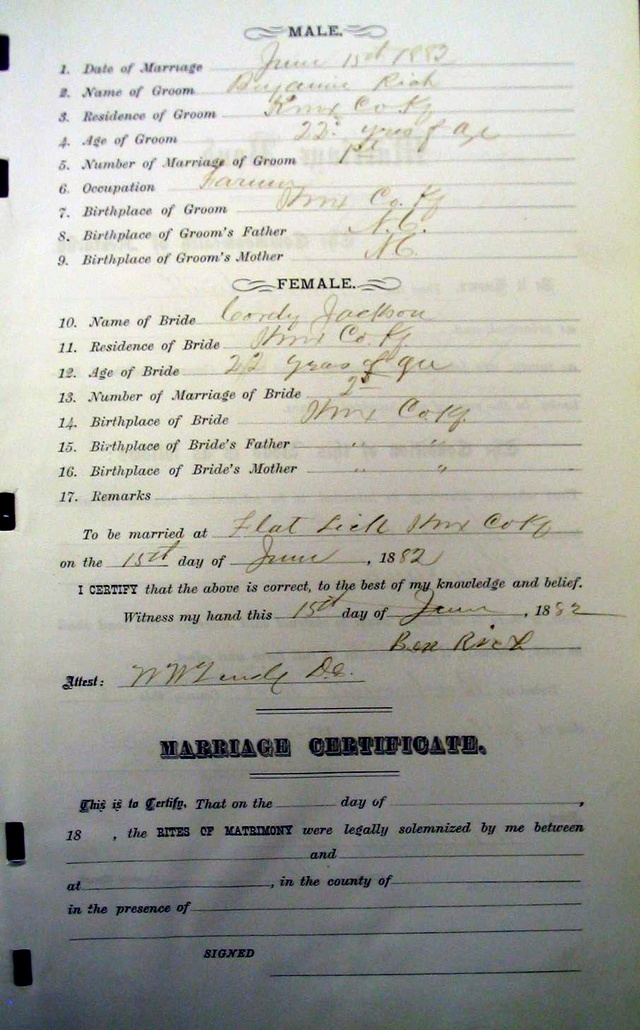 MALE.
1. Date of Marriage June 15th 1882
2. Name of Groom Benjamin Rich
3. Residence of Groom Knox Co Ky
4. Age of Groom 22 years of age
5. Number of Marriage of Groom 1st
6. Occupation Farmer
7. Birthplace of Groom Knox Co. Ky
8. Birthplace of Groom's Father N.C.
9. Birthplace of Groom's Mother N.C.
FEMALE.
10. Name of Bride Cordy Jackson
11. Residence of Bride Knox Co. Ky
12. Age of Bride 22 years of age
13. Number of Marriage of Bride
14. Birthplace of Bride Knox Co. Ky.
15. Birthplace of Bride's Father " "
16. Birthplace of Bride's Mother " "
17. Remarks
To be married at Flat Lick Knox Co Ky
on the 15th day of June, 1882
I CERTIFY that the above is correct, to the best of my knowledge and belief.
Witness my hand this 15th day of June, 1882
Ben Rich
Attest: D.C.
MARRIAGE CERTIFICATE.
This is to Certify, That on the day of ,
18 , the RITES OF MATRIMONY were legally solemnized by me between
and
at , in the county of
in the presence of
SIGNED